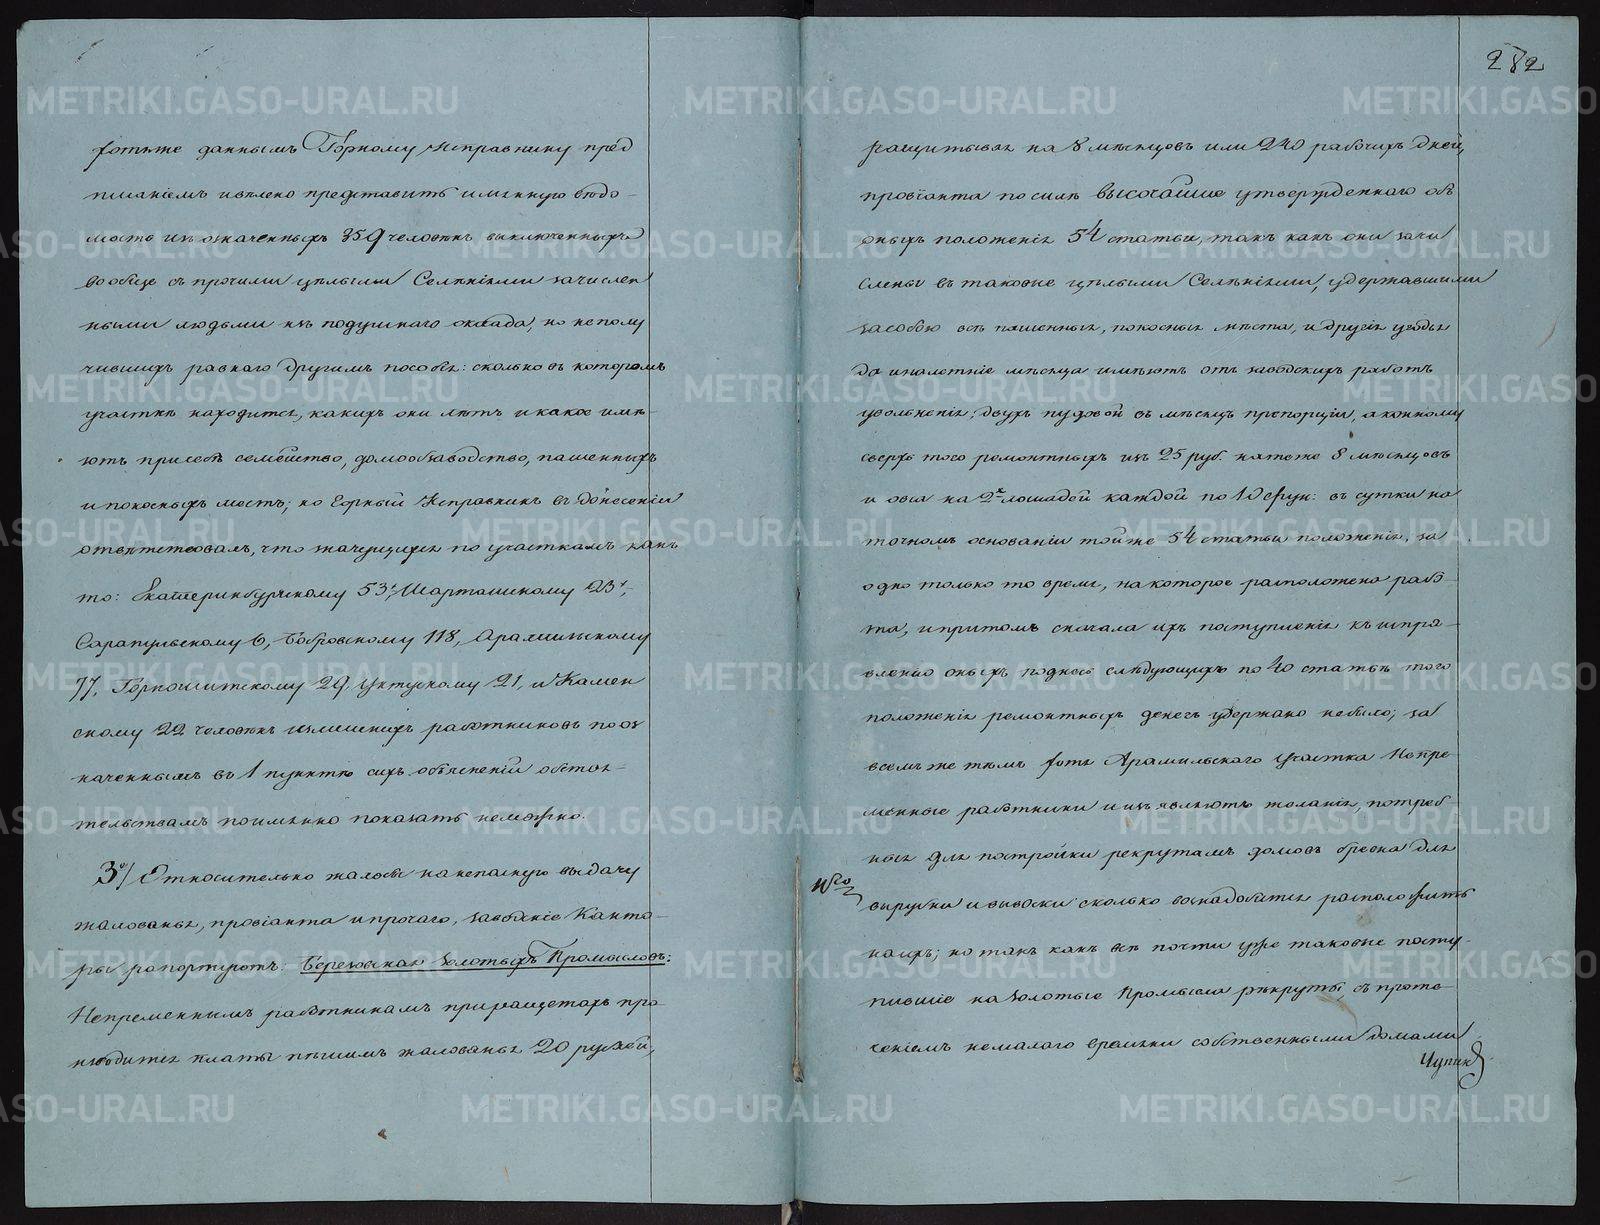 хотя же даннымъ Горному Исправнику пред
писаніемъ и велено представить имянную вѣдо-
мость изъ означенныхъ 359 человѣкъ выключенныхъ
вообще съ прочими цѣлыми Селеніями зачислен
ными людьми изъ подушнаго оклада, но неполу
чившихъ равнаго другимъ пособія: сколько въ которомъ
участкѣ находится, какихъ они лѣтъ и какое имѣ-
ютъ при себѣ семейство, домообзаводство, пашенныхъ
и покосныхъ мѣстъ; но Горный Исправникъ въ донесеніи
отвѣтствовалъ, что значущихся по участкамъ какъ
то: Екатеринбургскому 53, Шарташскому 23,
Сарапульскому 6, Бобровскому 118, Арамильскому
77, Горнощитскому 29, Уктускому 21, и Камен
скому 22 человѣкъ излишнихъ работниковъ по оз
наченнымъ въ 1 пунктѣ сихъ объясненій обстоя-
тельствамъ поимянно показать неможно.
3е/ Относительно жалобъ на неполную выдачу
жалованья, провіанта и прочаго, заводскіе Канто-
ры рапортуютъ: Березовская Золотыхъ Промысловъ:
Непременнымъ работникамъ при расщетахъ про
изводится платы пѣшимъ жалованья 20 рублей,
282
расщитывая на 8 мѣсяцовъ или 240 рабочихъ дней,
провіанта по силѣ Высочайше утвержденнаго объ
оныхъ положенія 54 статьи, такъ какъ они зачи
слены въ таковые цѣлыми Селеніями, удержавшими
за собою всѣ пашенныя, покосныя мѣста, и другія угодья
да и на летніе мѣсяца имѣютъ отъ заводскихъ работъ
увольненія, двухъ пудовой въ мѣсяцъ препорціи, а конному
сверхъ того ремонтныхъ изъ 25 руб. на теже 8 мѣсяцовъ
и овса на 2х лошадей каждой по 10 фун: въ сутки на
точномъ основаніи той же 54 статьи положенія, за
одно только то время, на которое расположена рабо-
та, и притомъ сначала ихъ поступленія къ испра-
вленію оныхъ поднесь слѣдующихъ по 40 статьѣ того
положенія ремонтныхъ денегъ удержано небыло; за
всемъ же тѣмъ хотя Арамильскаго участка Непре-
менные работники и изъявляютъ желаніе, потреб-
ныя для постройки рекрутамъ домовъ бревна для
вырубки и вывоски сколько вознадобится расположить
на ихъ; но такъ какъ всѣ почти уже таковые посту-
пившіе на Золотые Промысла рекруты, съ проте-
ченіемъ немалаго времяни собственными домами